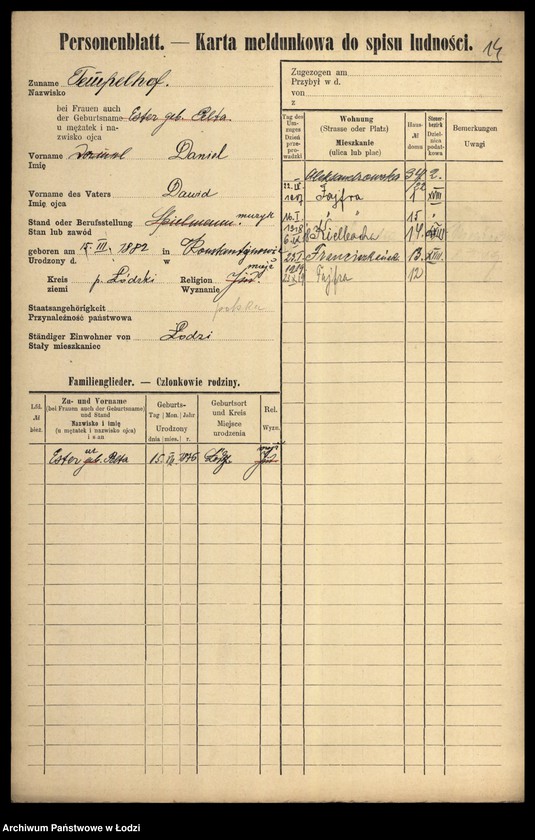 Personenblatt. — Karta meldunkowa do spisu ludności.
14
Zuname Tempelhof.
Nazwisko
bei Frauen auch
der Geburtsname Ester geb. Pelta.
u mężatek i na-
zwisko ojca
Vorname Daniel
Imię
Vorname des Vaters Dawid
Imię ojca
Stand oder Berufsstellung Spielmann. muzyk
Stan lub zawód
geboren am 15. III. 1882 in Konstantynowie
Urodzony d. w
Kreis p. Łódzki Religion mojż
ziemi Wyznanie
Staatsangehörigkeit polska
Przynależność państwowa
Ständiger Einwohner von Łodzi
Stały mieszkaniec
Familienglieder. — Członkowie rodziny.
Lfd. № bież.
Zu- und Vorname
(bei Frauen auch der Geburtsname)
und Stand
Nazwisko i imię
(u mężatek i nazwisko ojca)
i stan
Geburts-
Tag Mon. Jahr
Urodzony
dnia mies. r.
Geburtsort
und Kreis
Miejsce
urodzenia
Rel.
Wyzn.
mojż
Ester geb. Pelta 15. III. 1876 Łódź
Zugezogen am
Przybył w d.
von
z
Tag des Um-zuges
Dzień prze-prowadzki
Wohnung
(Strasse oder Platz)
Mieszkanie
(ulica lub plac)
Haus-№ domu
Steuer-bezirk
Dziel-nica podatkowa
Bemerkungen
Uwagi
Aleksandrowska 34 2.
Fajfra 1 XVIII
16.I. " " 15
Kielbacha 14
Franciszkańska 13. XIII
Fajfra 12
Archiwum Państwowe w Łodzi